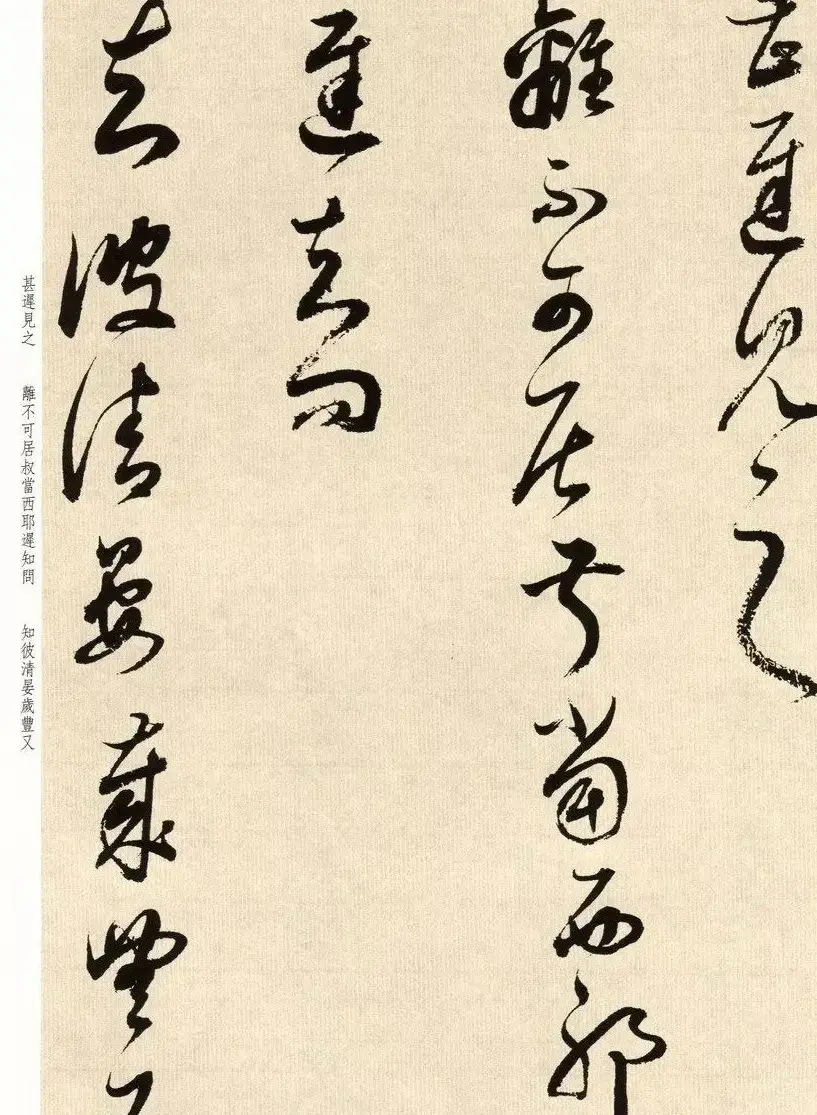 甚遲見之
離不可居叔當西耶
遲知問
知彼清晏歲豐又
甚遲見之 離不可居叔當西耶遲知問 知彼清晏歲豐又